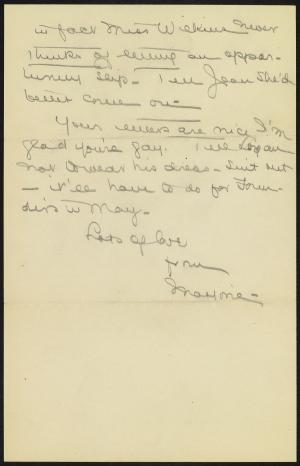 in fact Miss Wilkins never
thinks of letting an oppor-
tunity slip - Tell Jean She'd
better come on -
Your letters are nice I'm
glad you're gay. Tell Logan
not to wear his dress - Suit out
- it'll have to do for Foun-
ders in May -
Lots of love
from